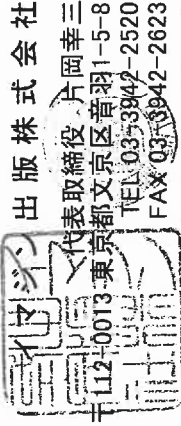 イマジン出版株式会社
代表取締役 片岡幸三
〒112-0013 東京都文京区音羽1-5-8
TEL 03-3942-2520
FAX 03-3942-2623